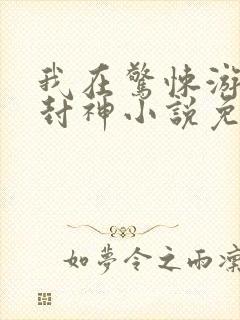 我在驚悚游
封神小說免
如夢令之雨凜